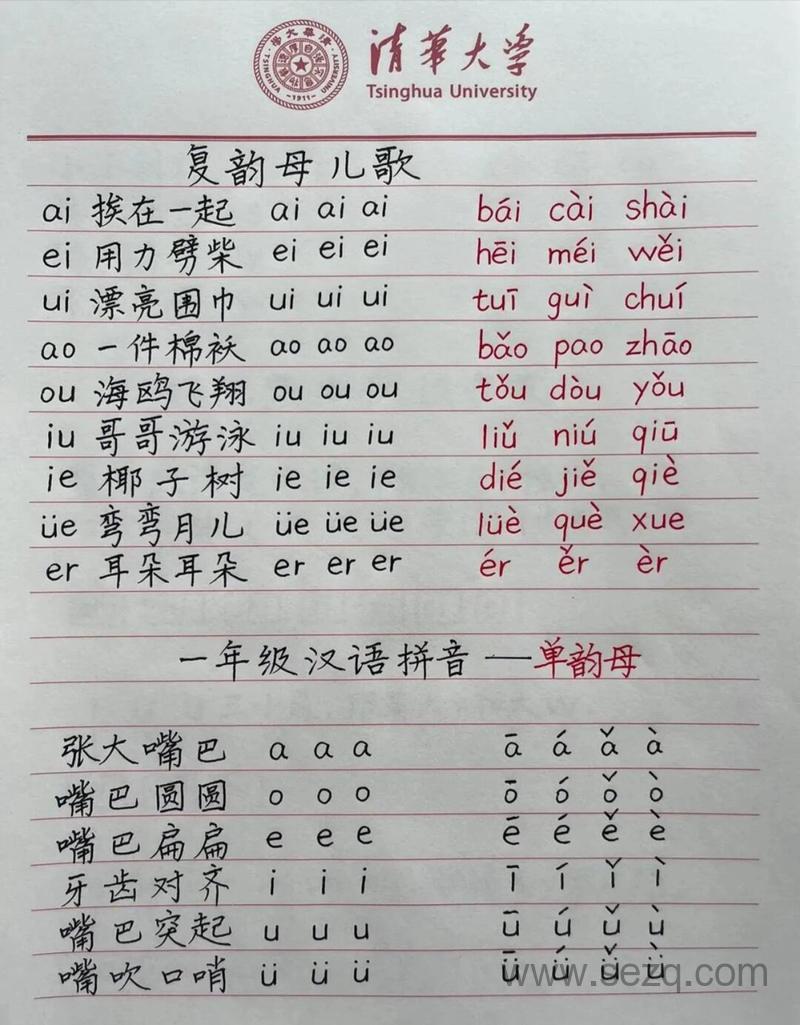 清華大学
Tsinghua University
复韵母儿歌
ai 挨在一起 ai ai ai bái cài shài
ei 用力劈柴 ei ei ei hēi méi wěi
ui 漂亮围巾 ui ui ui tuī guì chuí
ao 一件棉袄 ao ao ao bǎo pao zhāo
ou 海鸥飞翔 ou ou ou tǒu dòu yǒu
iu 哥哥游泳 iu iu iu liǔ niú qiū
ie 椰子树 ie ie ie dié jiě qiè
üe 弯弯月儿 üe üe üe lüè què xue
er 耳朵耳朵 er er er ér ěr èr
一年级汉语拼音——单韵母
张大嘴巴 a a a ā á ǎ à
嘴巴圆圆 o o o ō ó ǒ ò
嘴巴扁扁 e e e ē é ě è
牙齿对齐 i i i ī í ǐ ì
嘴巴突起 u u u ū ú ǔ ù
嘴吹口哨 ü ü ü ǖ ǘ ǚ ǜ
www.sezq.com